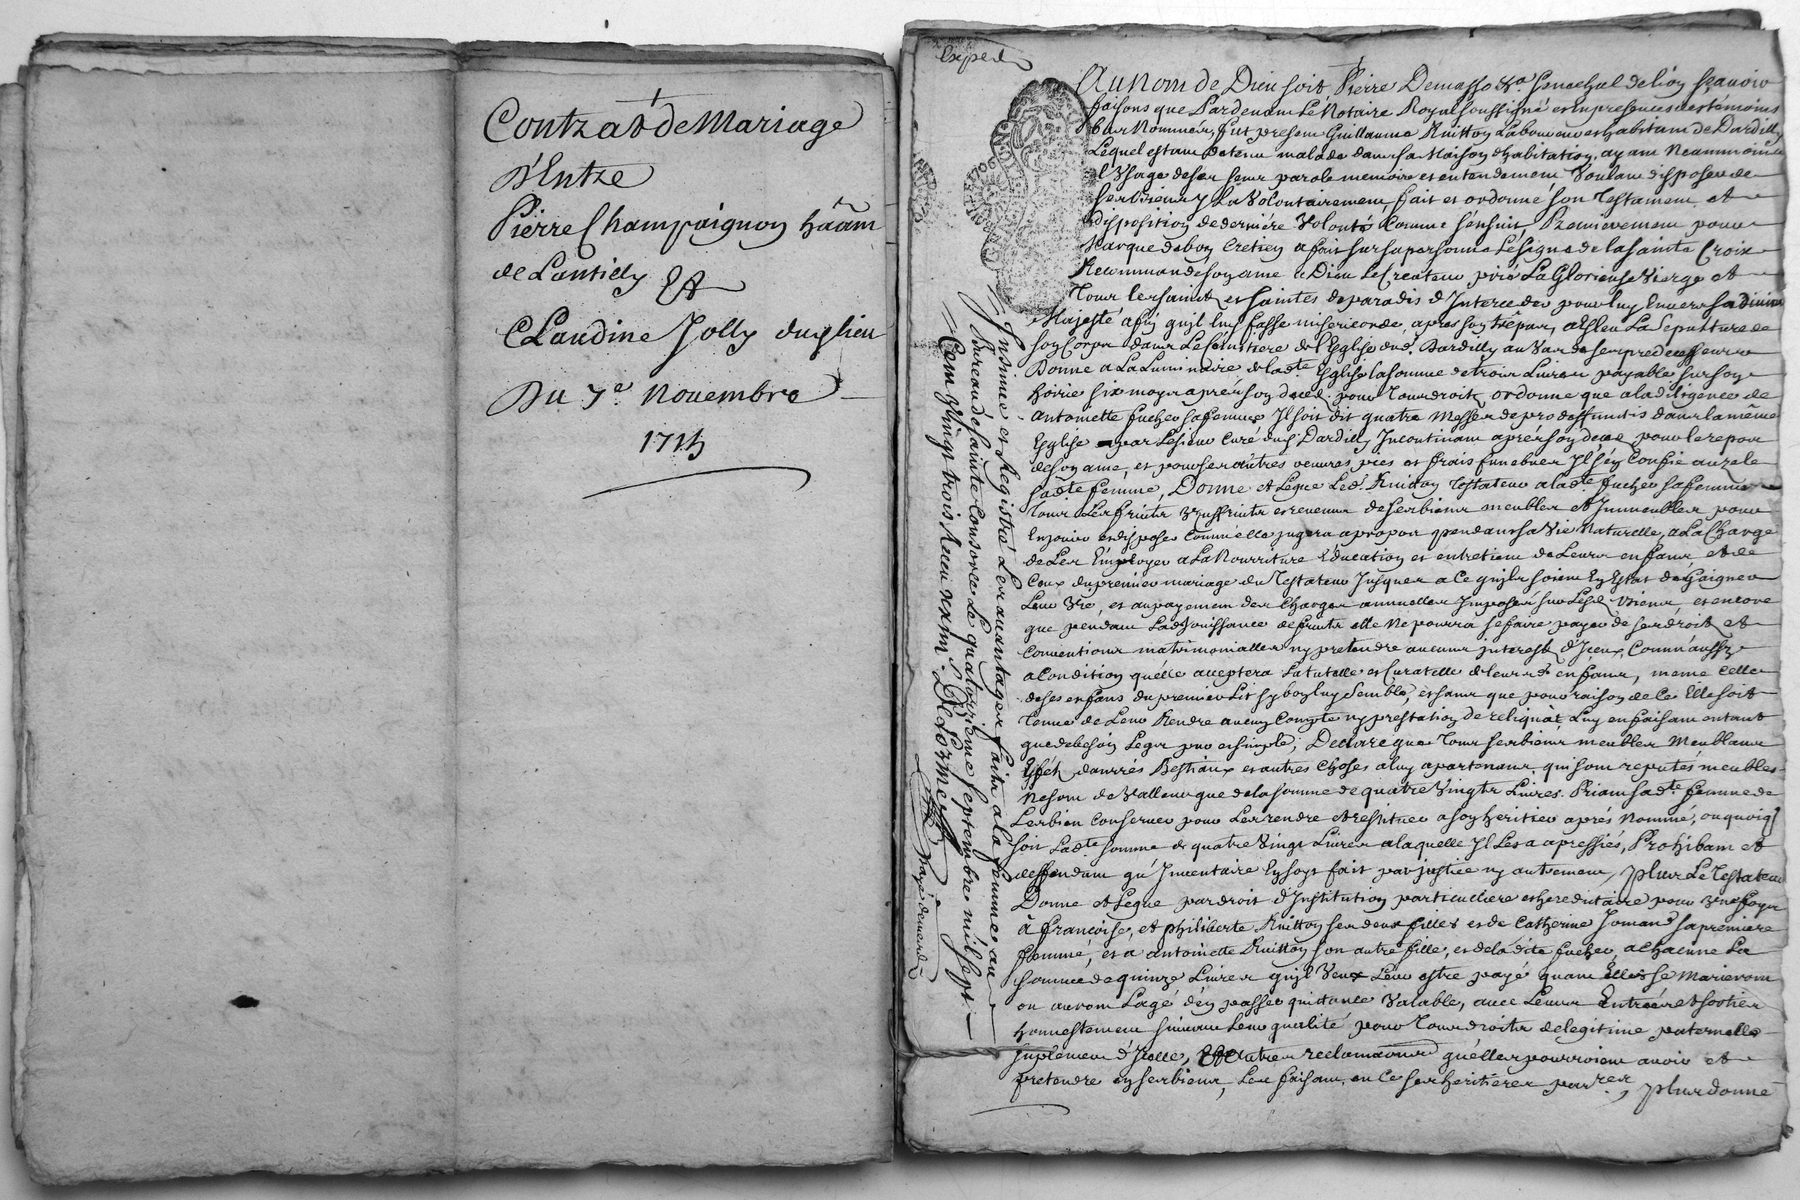 Contrat de Mariage
D'Entre
Pierre Champaignon hââm
de Lantilly Et
Claudine Jolly dud lieu
Du 7e Novembre
1715
Exped
Au Nom de Dieu soit, Pierre Demasso Sénechal de lion sçavoir
faisons que Pardevant Le Notaire Royal soussigné et en presence des temoins
bas Nommés, fut present Guillaume Ruitton Laboureur habitant de Dardilly
Lequel estant detenu malade dans sa Maison d'habitation, ayant Neanmoins
l'Usage de ses sens parole memoire et entendement Voulant disposer de
ses biens Il a Volontairement fait et ordonné son Testament et
disposition de derniére Volonté Comme s'ensuit Premierement pour
Marque de bon Cretien a fait sur sa personne Le signe de la sainte Croix
Recommandé son ame a Dieu Le Createur prié La Glorieuse Vierge et
Tous les saints et saintes de paradis d'Interceder pour luy Envers sa divine
Majesté afin qu'il luy fasse misericorde, apres son trépas, a Esleu La Sepulture de
son Corps dans Le Cémitiere de l'Eglise dud. Dardilly au Vas de ses predecesseurs
Donne a La Luminaire de lad.te Esglise la somme de trois Livres payable sur son
hoirie six mois aprés son deced. pour tous droits ordonne que a la diligence de
antoinette fucher sa femme Il soit dit quatre Messes de pro deffunctis dans la même
Esglise par Le sieur Curé dud. Dardilly Incontinant aprés son deced pour le repos
de son ame, et pour ses autres œuvres pies et frais funebres Il s'en Confie au zele
sad.te femme, Donne et Legue Led. Ruitton Testateur a lad.te fucher sa femme
Tous Les fruits Usuffruits et revenus de ses biens meubles et Immeubles pour
En jouir et disposer Comme elle jugera a propos pendant sa Vie Naturelle, a La Charge
de Les Employer a La Nourriture Education et entretient de Leurs enfans, et de
Ceux du premier mariage du Testateur Jusques a Ce qu'ils soient En Estat de Gaigner
Leur Vie, et au payement des Charges annuelles Imposés sur Lesd. biens, et encore
que pendant Lad. Jouissance de fruits elle Ne pourra se faire payer de ses droits et
Conventions matrimonialles ny pretendre aucuns interests d'Iceux, Comm'aussy
a Condition qu'elle acceptera La tutelle et Curatelle de leursd. enfans, meme Celle
de ses enfans du premier Lit sy bon luy semble, et sans que pour raison de Ce Elle soit
Tenue de Leur Rendre aucun Compte ny prestation de reliquat Luy en faisant entant
que de besoin Legs pur et simple, Declare que Tous ses biens meubles Meublans
Effets danrrés Bestiaux et autres Choses a luy apartenans qui sont reputés meubles
Ne sont de Valleur que de la somme de quatre Vingts Livres. Priant sad.te femme de
Les bien Conserver pour Les rendre et restituer a son heritier aprés Nommé, ou quoi qu'il
soit Lad.te somme de quatre Vingt Livres a laquelle Il Les a apressiés, Prohibant et
deffendant qu'Inventaire En soit fait par justice ny autrement, plus Le Testateur
Donne et Legue par droit d'Institution particuliere et hereditaire pour Une foys
à francoise, et philiberte Ruitton ses deux filles et de Catherine Jomand sa premiere
femme, et a antoinette Ruitton son autre fille, et de la dite fucher, a Chacune La
somme de quinze Livres qu'il Veut Leur estre payé quant Elles se Marieront
ou auront L'agé d'en passer quittance Valable, avec Leurs Entrées et sorties
honnestement suivant Leur qualité pour Tous droits de legitime paternelle
suplement d'Icelle, Et autres reclamations qu'elles pourroient avoir et
pretendre en ses biens, Les faisant en Ce ses heritieres par.res, plus donne
Insinué et Registré Les avantages faits a la femme au
Bureau de sainte Consorce Le quatorzieme septembre mil sept
Cent Vingt trois Receu
Delorme